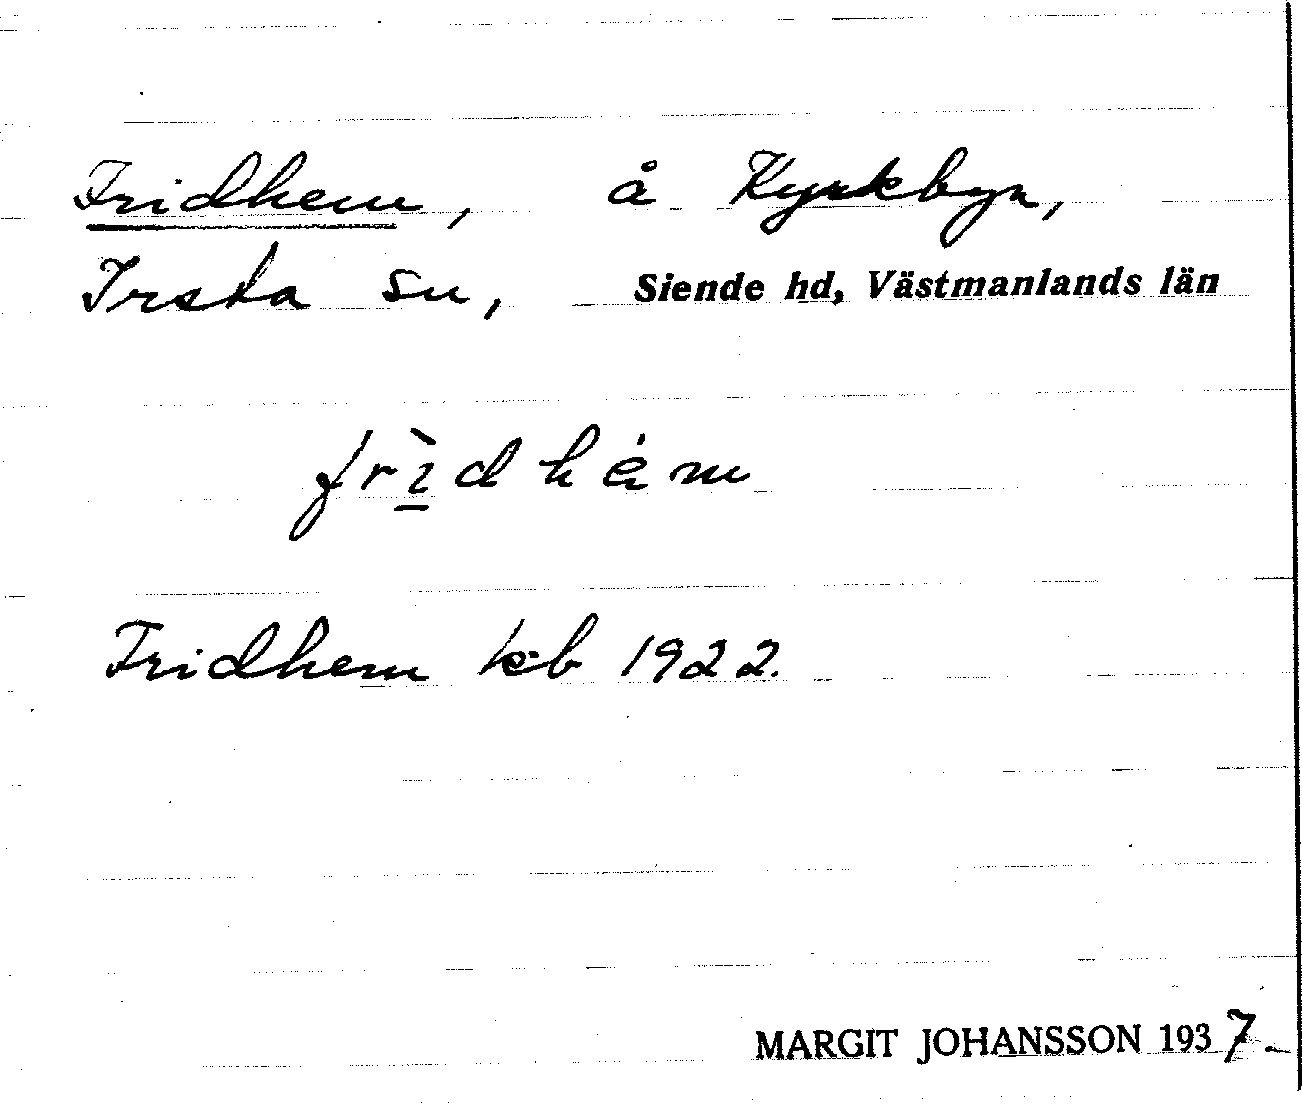 Fridhem, å Kyrkbyn,
Irsta sn, Siende hd, Västmanlands län
frìdhém
Fridhem kb 1922.
MARGIT JOHANSSON 1937.